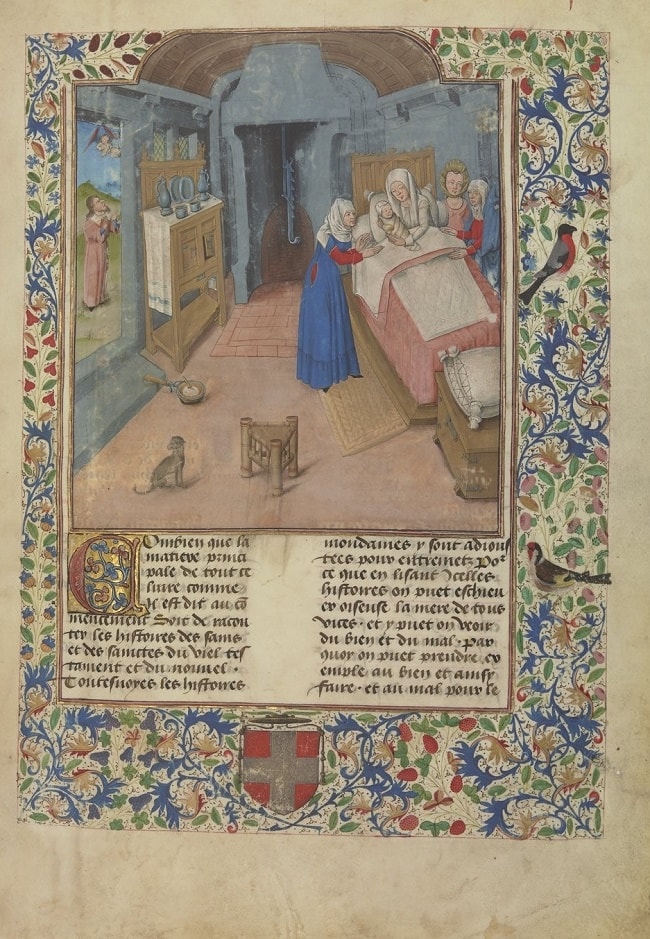 Combien que la
matiere princi
pale de tout ce
liure comme
il est dit au cō
mencement Soit de racon
ter les histoires des sains
et des sainctes du viel tes
tament et du nouuel .
Toutesuoyes les histoires
mondaines y sont adious
tees pour
ce que en lisant Jcelles
histoires on puet escheiu
er oiseuse la mere de tous
vices . et y puet on veoir
du bien et du mal . par
quoy on puet prendre ex
emple au bien
faire . et au mal pour le